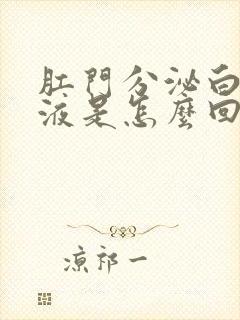 肛門分泌白
液是怎麼回
凉祁一